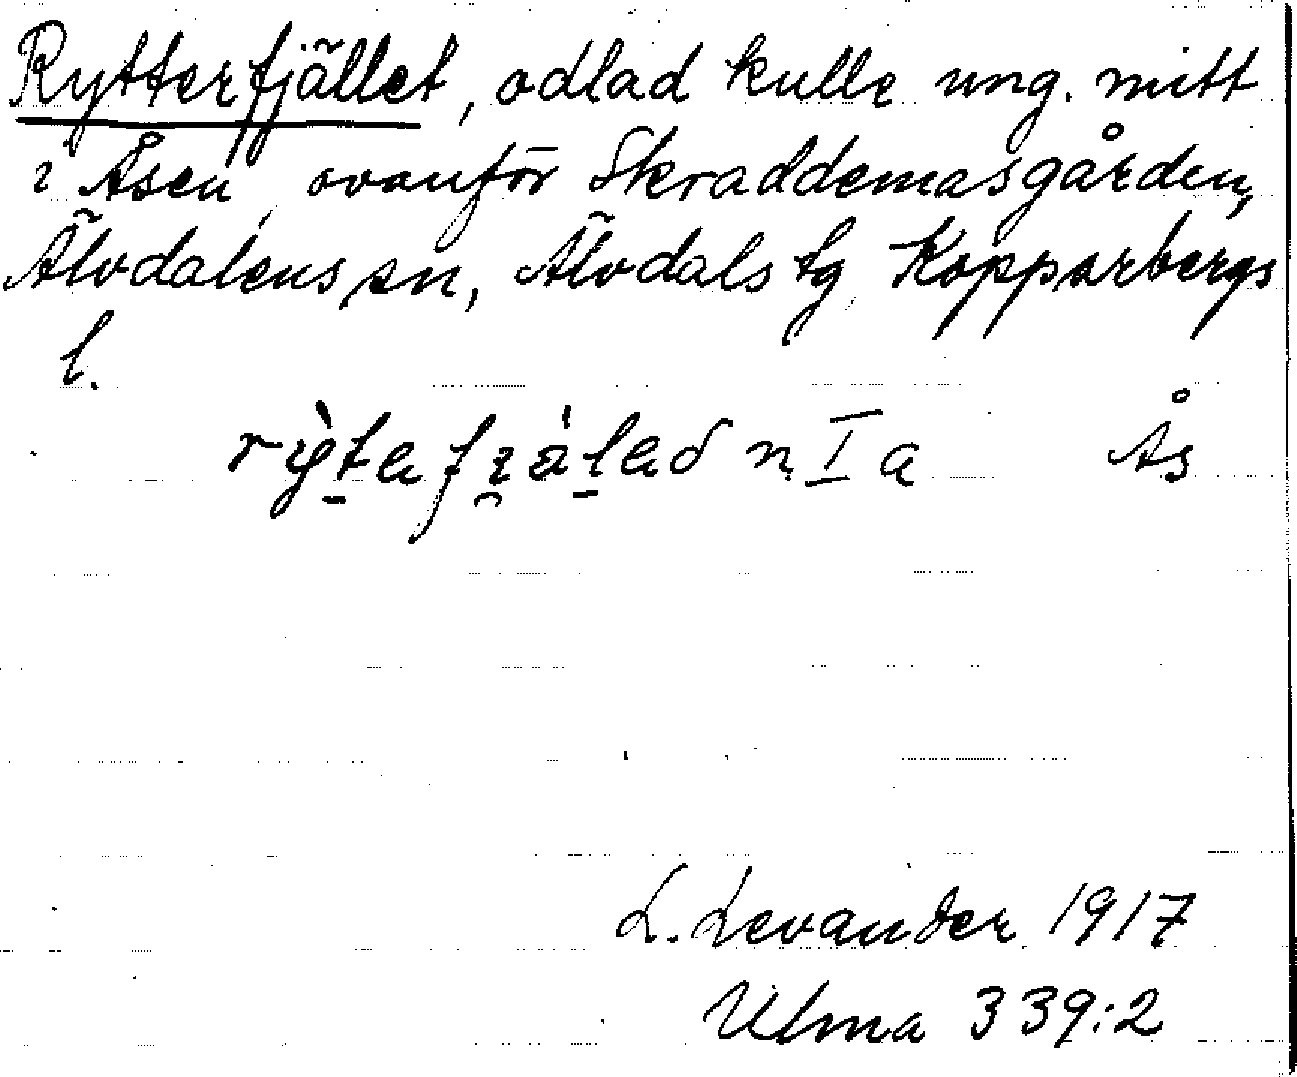 Rytterfjället, odlad kulle ung. mitt
i Åsen, ovanför Skraddemasgården,
Älvdalens sn, Älvdals tg, Kopparbergs
l.
n I a Ås
L. Levander 1917
Ulma 339:2